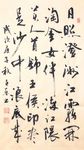 日照澄洲江霧開
淘金女伴滿江隈
美人首飾侯王印盡
是沙中浪底來